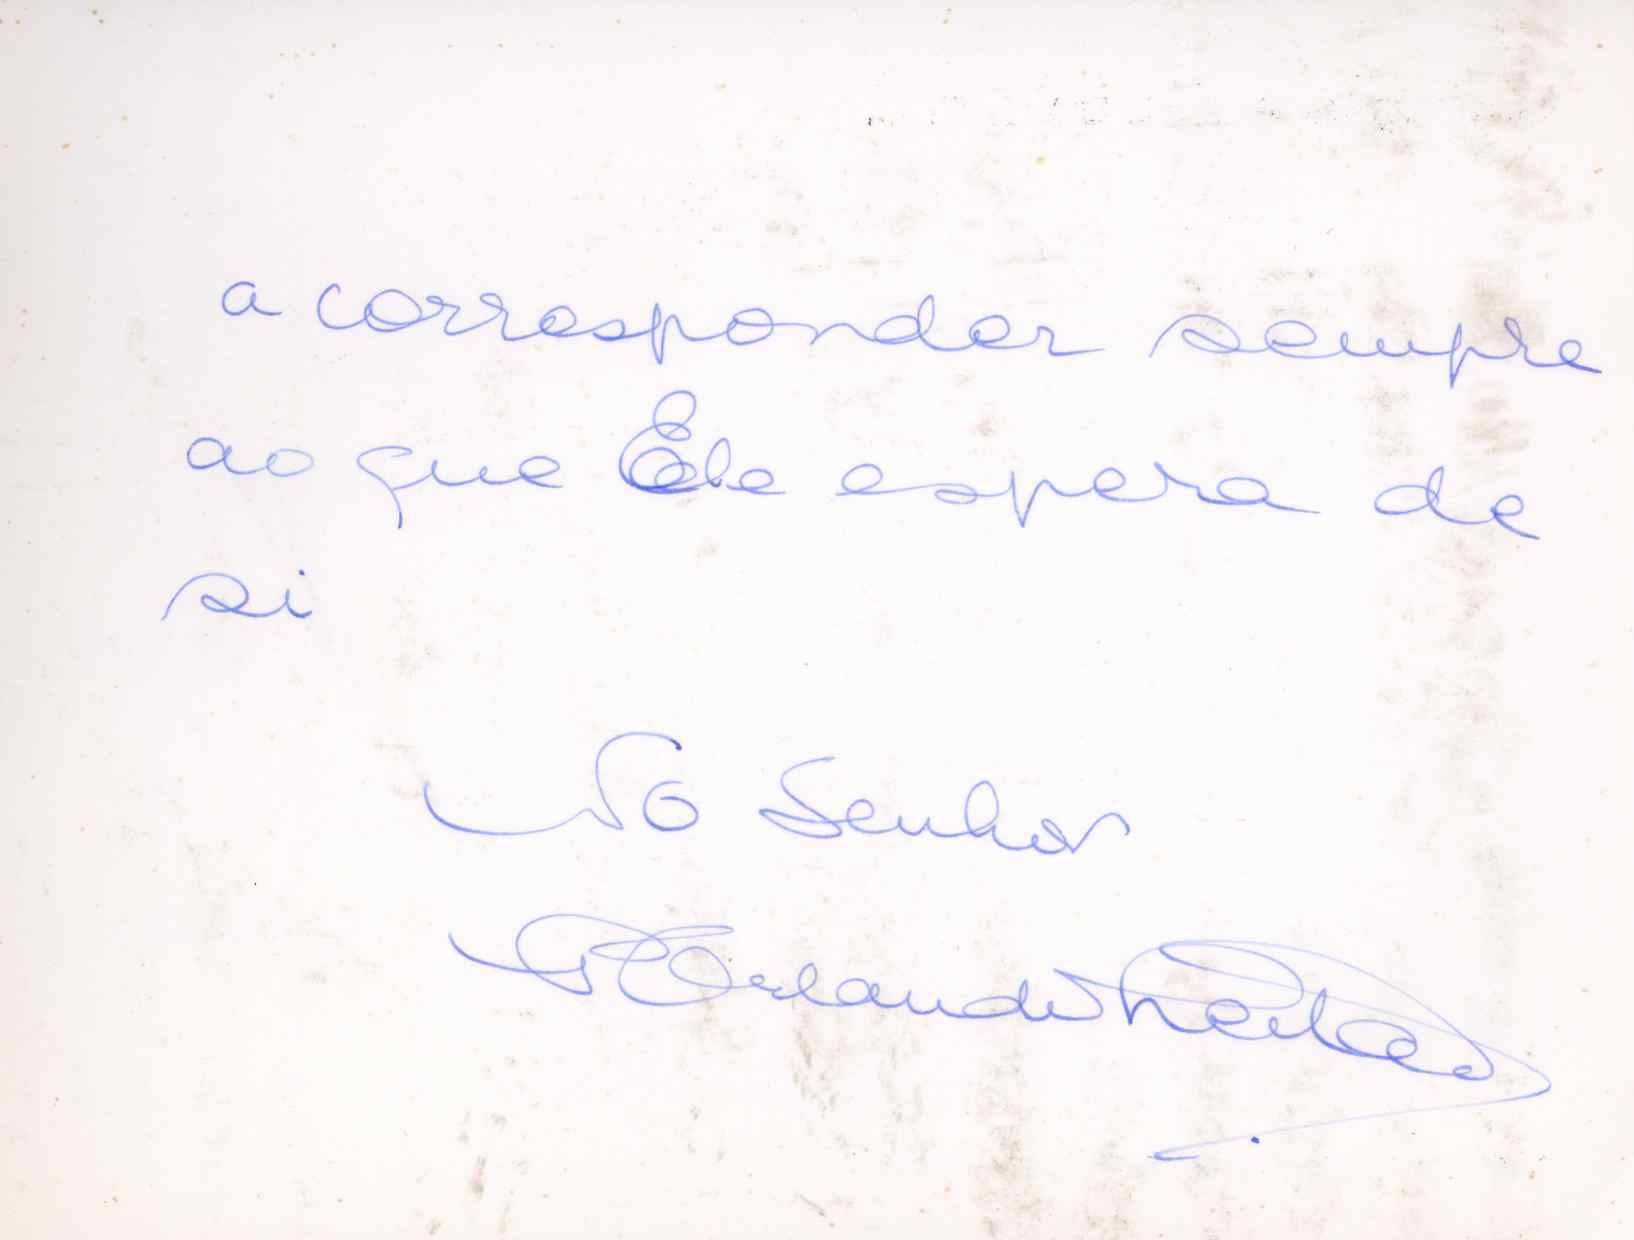 a corresponder sempre
ao que Ele espera de
si
No Senhor
P. Orlando